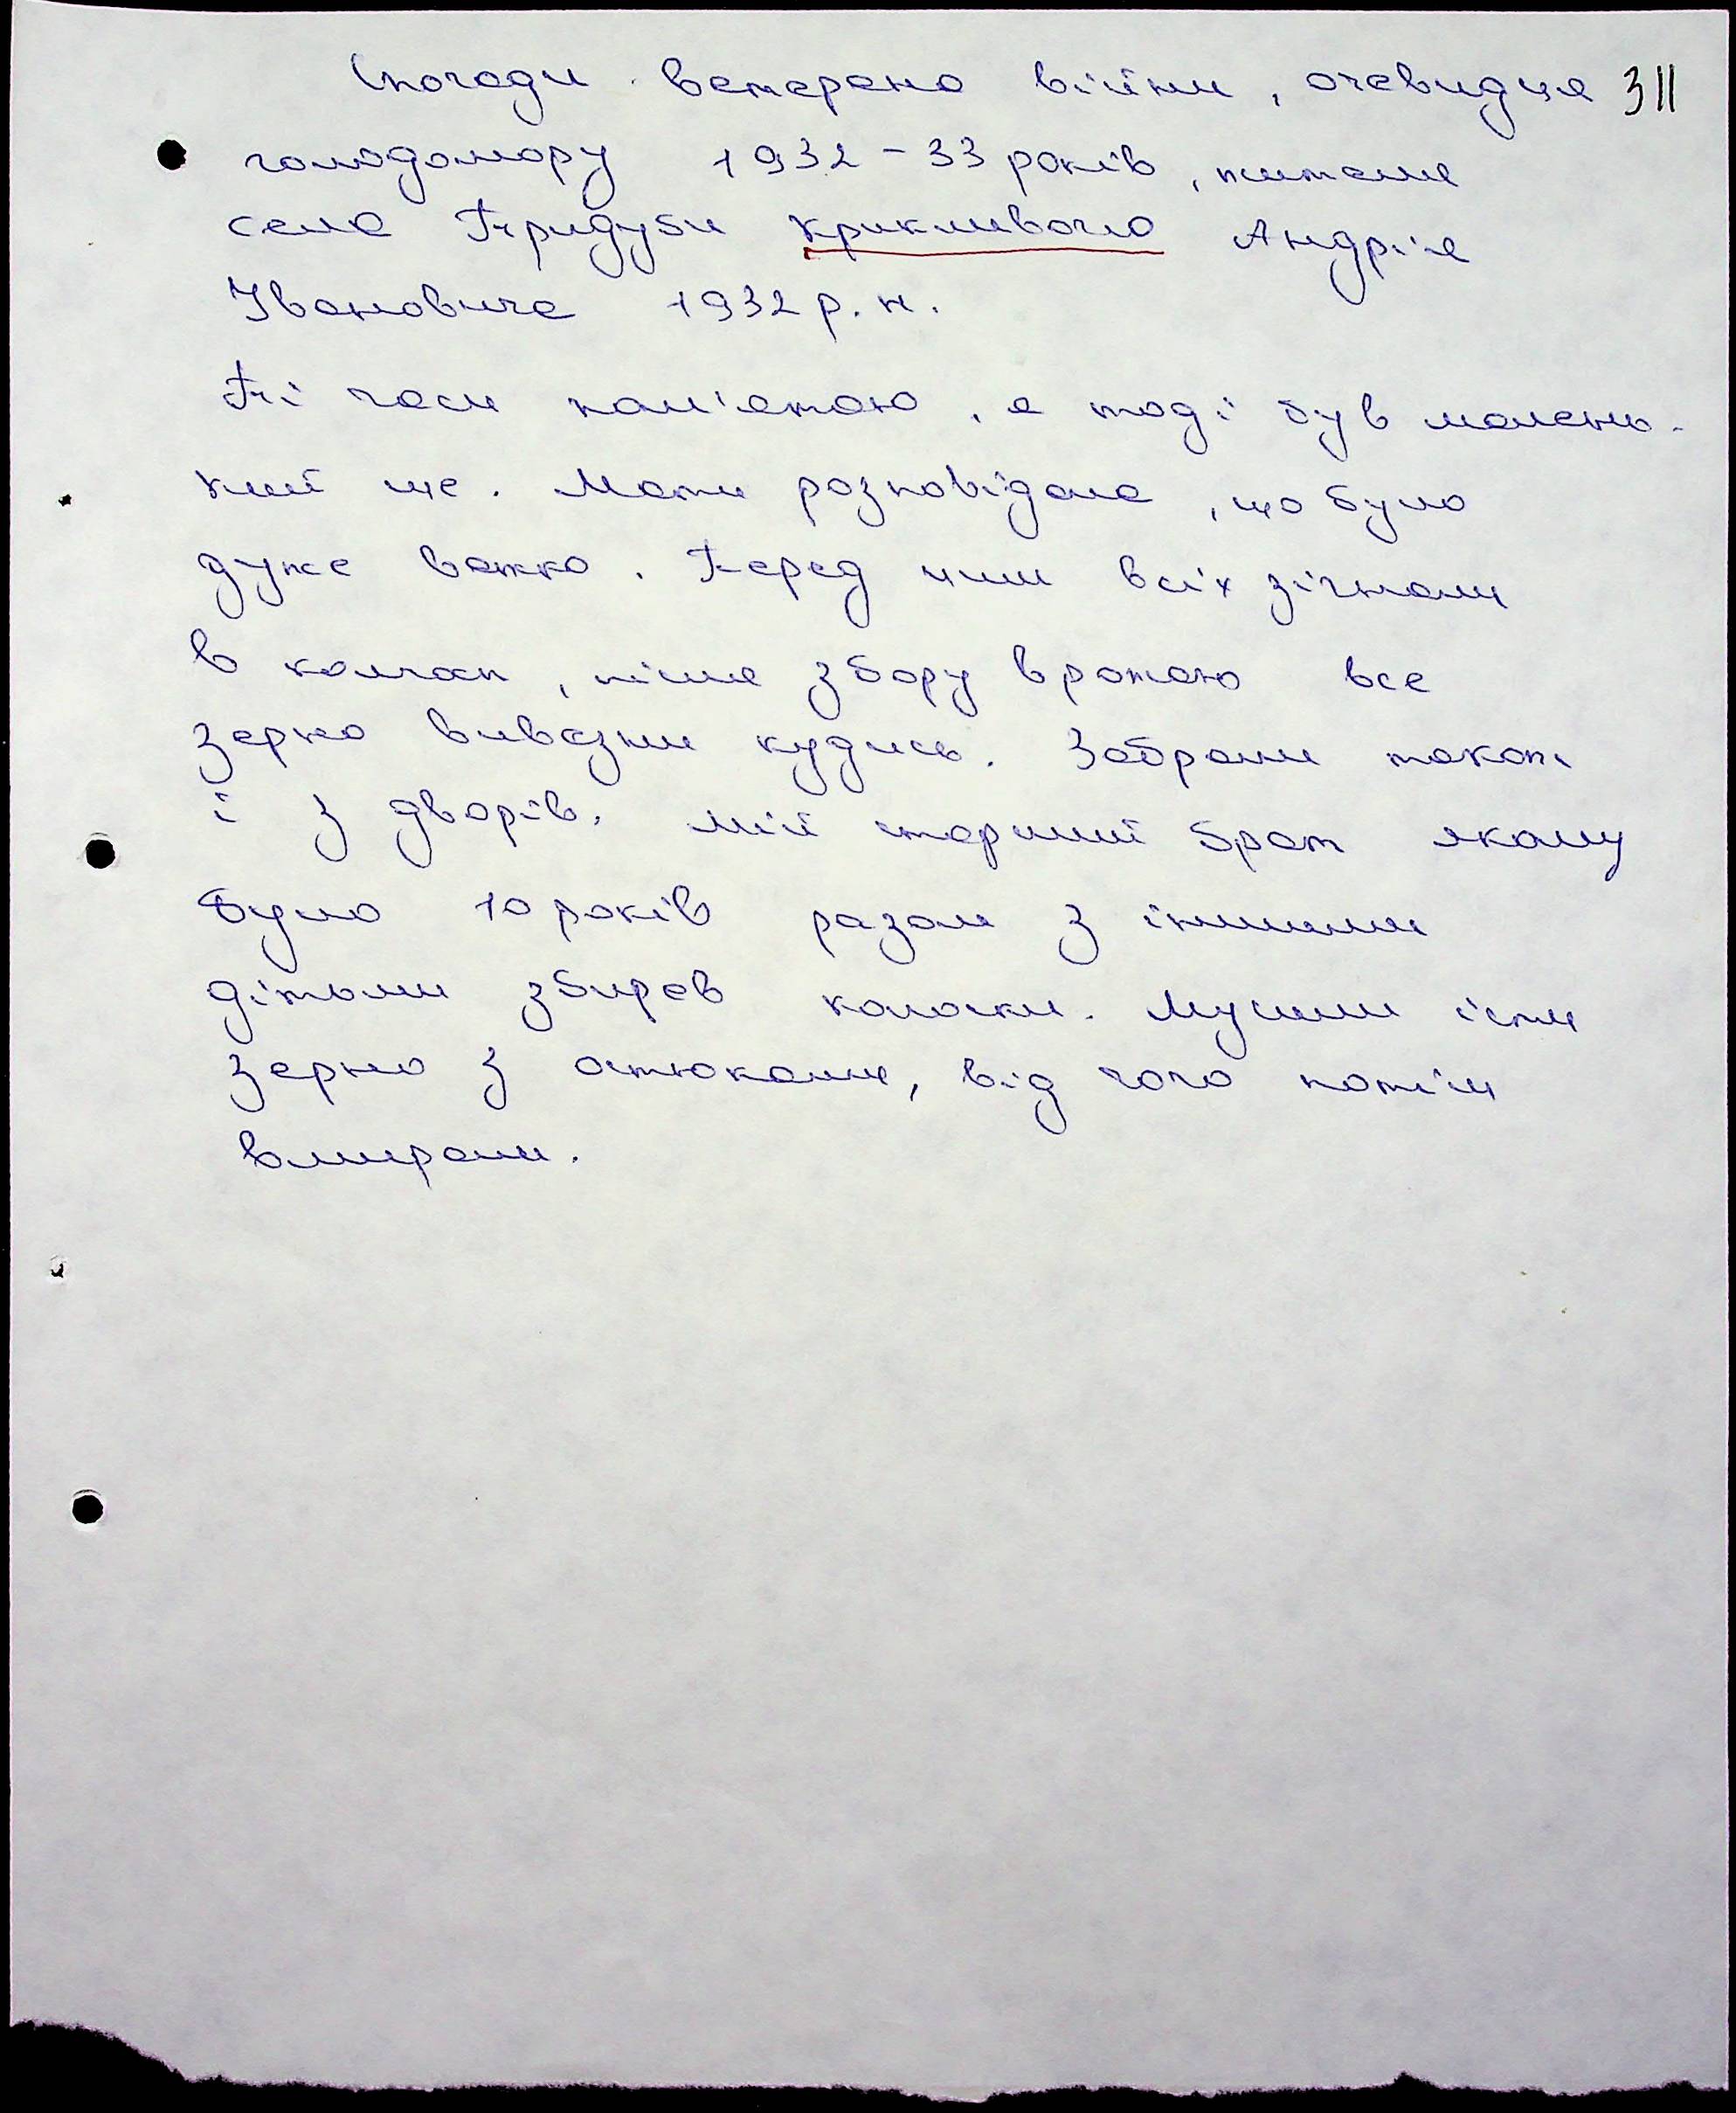 Спогади ветерана війни, очевидця 311
голодомору 1932-33 років, жителя
села Тридуби Крикливого Андрія
Івановича 1932 р. н.
Ті часи пам'ятаю, я тоді був малень-
кий ще. Мати розповідала, що було
дуже важко. Перед цим всіх зігнали
в колгосп, після збору врожаю все
зерно вивезли кудись. Забрали також
і з дворів. Мій старший брат якому
було 10 років разом з іншими
дітьми збирав колоски. Мусили їсти
зерно з остюками, від чого потім
вмирали.